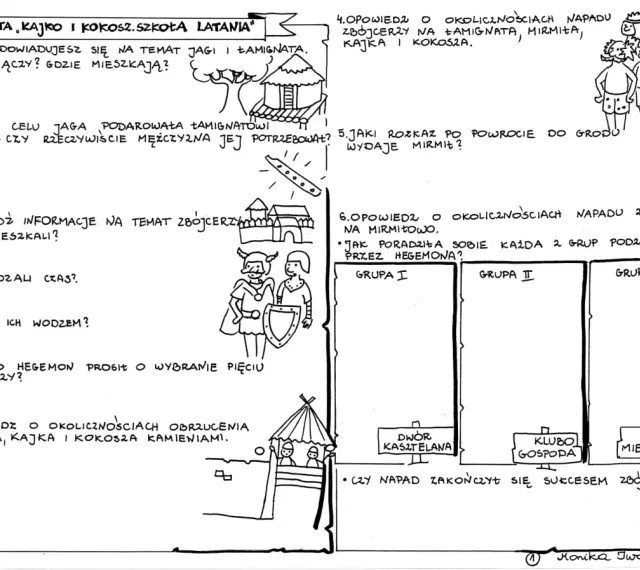 TA „KAJKO I KOKOSZ. SZKOŁA LATANIA"
DOWIADUJESZ SIĘ NA TEMAT JAGI I ŁAMIGNATA.
ĄCZY? GDZIE MIESZKAJĄ?
CELU JAGA PODAROWAŁA ŁAMIGNATOWI
CZY RZECZYWIŚCIE MĘŻCZYZNA JEJ POTRZEBOWAŁ?
DŹ INFORMACJE NA TEMAT ZBÓJCERZY
ESZKALI?
DZALI CZAS?
ICH WODZEM?
O HEGEMON PROSIŁ O WYBRANIE PIĘCIU
ZY?
EDZ O OKOLICZNOŚCIACH OBRZUCENIA
A, KAJKA I KOKOSZA KAMIENIAMI.
4. OPOWIEDZ O OKOLICZNOŚCIACH NAPADU
ZBÓJCERZY NA ŁAMIGNATA, MIRMIŁA,
KAJKA I KOKOSZA.
5. JAKI ROZKAZ PO POWROCIE DO GRODU
WYDAJE MIRMIŁ?
6. OPOWIEDZ O OKOLICZNOŚCIACH NAPADU Z
NA MIRMIŁOWO.
• JAK PORADZIŁA SOBIE KAŻDA Z GRUP PODZ
PRZEZ HEGEMONA?
GRUPA I
GRUPA II
GRU
DWÓR
KASZTELANA
KLUBO
GOSPODA
MIE
• CZY NAPAD ZAKOŃCZYŁ SIĘ SUKCESEM ZBÓ
1 Monika Iwa